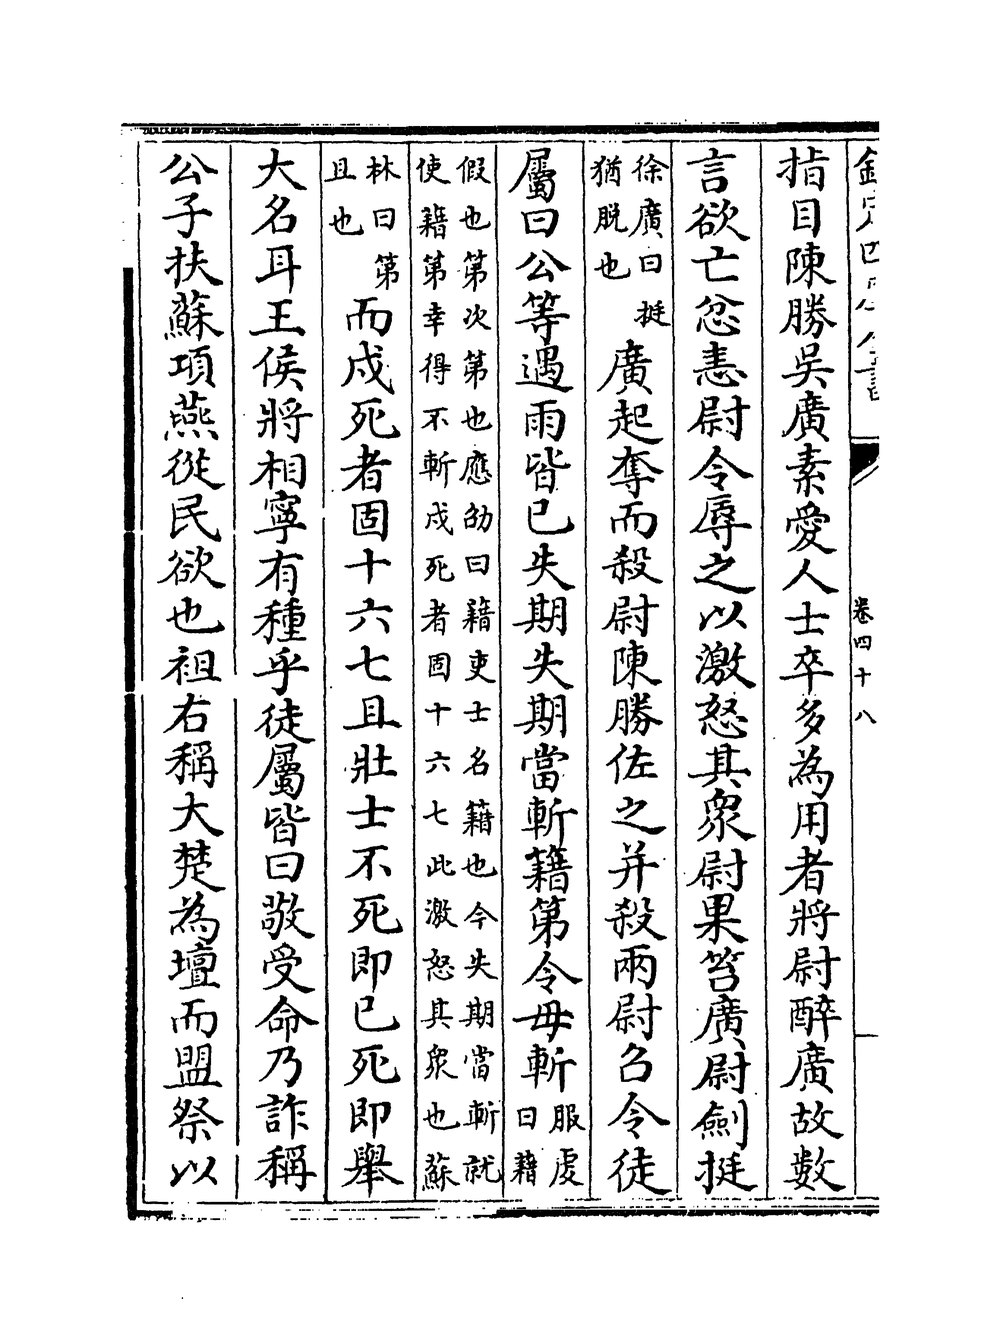 欽定四庫全書
卷四十八
指目陳勝吳廣素愛人士卒多為用者將尉醉廣故數
言欲亡忿恚尉令辱之以激怒其衆尉果笞廣尉劍挺
徐廣曰挺
猶脫也
廣起奪而殺尉陳勝佐之并殺兩尉召令徒
屬曰公等遇雨皆已失期失期當斬籍第令毋斬
服虔
曰籍
假也第次第也應劭曰籍吏士名籍也今失期當斬就
使籍第幸得不斬戍死者固十六七此激怒其衆也蘇
林曰第
且也
而戍死者固十六七且壯士不死即已死即舉
大名耳王侯將相寧有種乎徒屬皆曰敬受命乃詐稱
公子扶蘇項燕從民欲也祖右稱大楚為壇而盟祭以